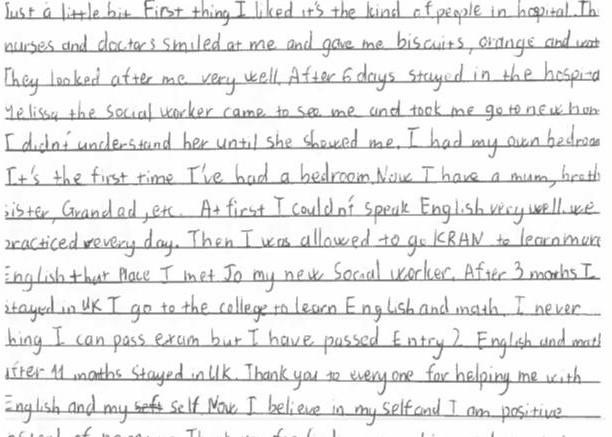 Just a little bit First thing I liked it's the kind of people in hospital. Th
nurses and doctors smiled at me and gave me biscuits, orange and wat
They looked after me very well. After 6 days stayed in the hospita
Melissa the social worker came to see me and took me go to new hom
I didn't understand her until she showed me. I had my own bedroom
It's the first time I've had a bedroom. Now I have a mum, broth
sister, Grandad, etc. At first I couldn't speak English very well. we
practiced every day. Then I was allowed to go KRAN to learn more
English that Place I met Jo my new Social worker. After 3 months I
stayed in UK I go to the college to learn English and math. I never
hing I can pass exam but I have passed Entry 2 English and math
after 11 months stayed in UK. Thank you to everyone for helping me with
English and my seft self Now I believe in my self and I am positive